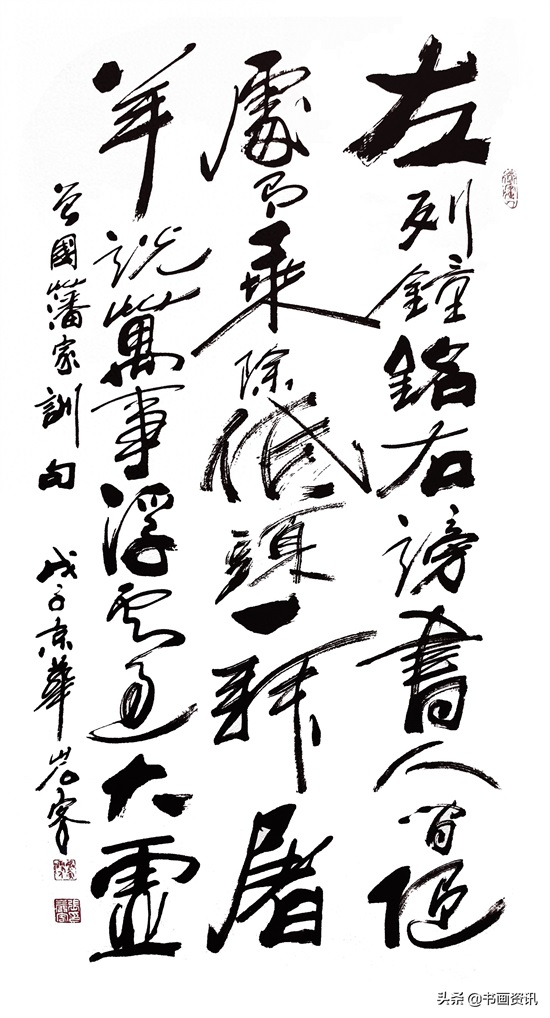 左列鐘銘右謗書人間隨
處有乘除低頭一拜屠
羊説萬事浮雲過太虛
曾國藩家訓句 戊子京華
头条 @书画资讯